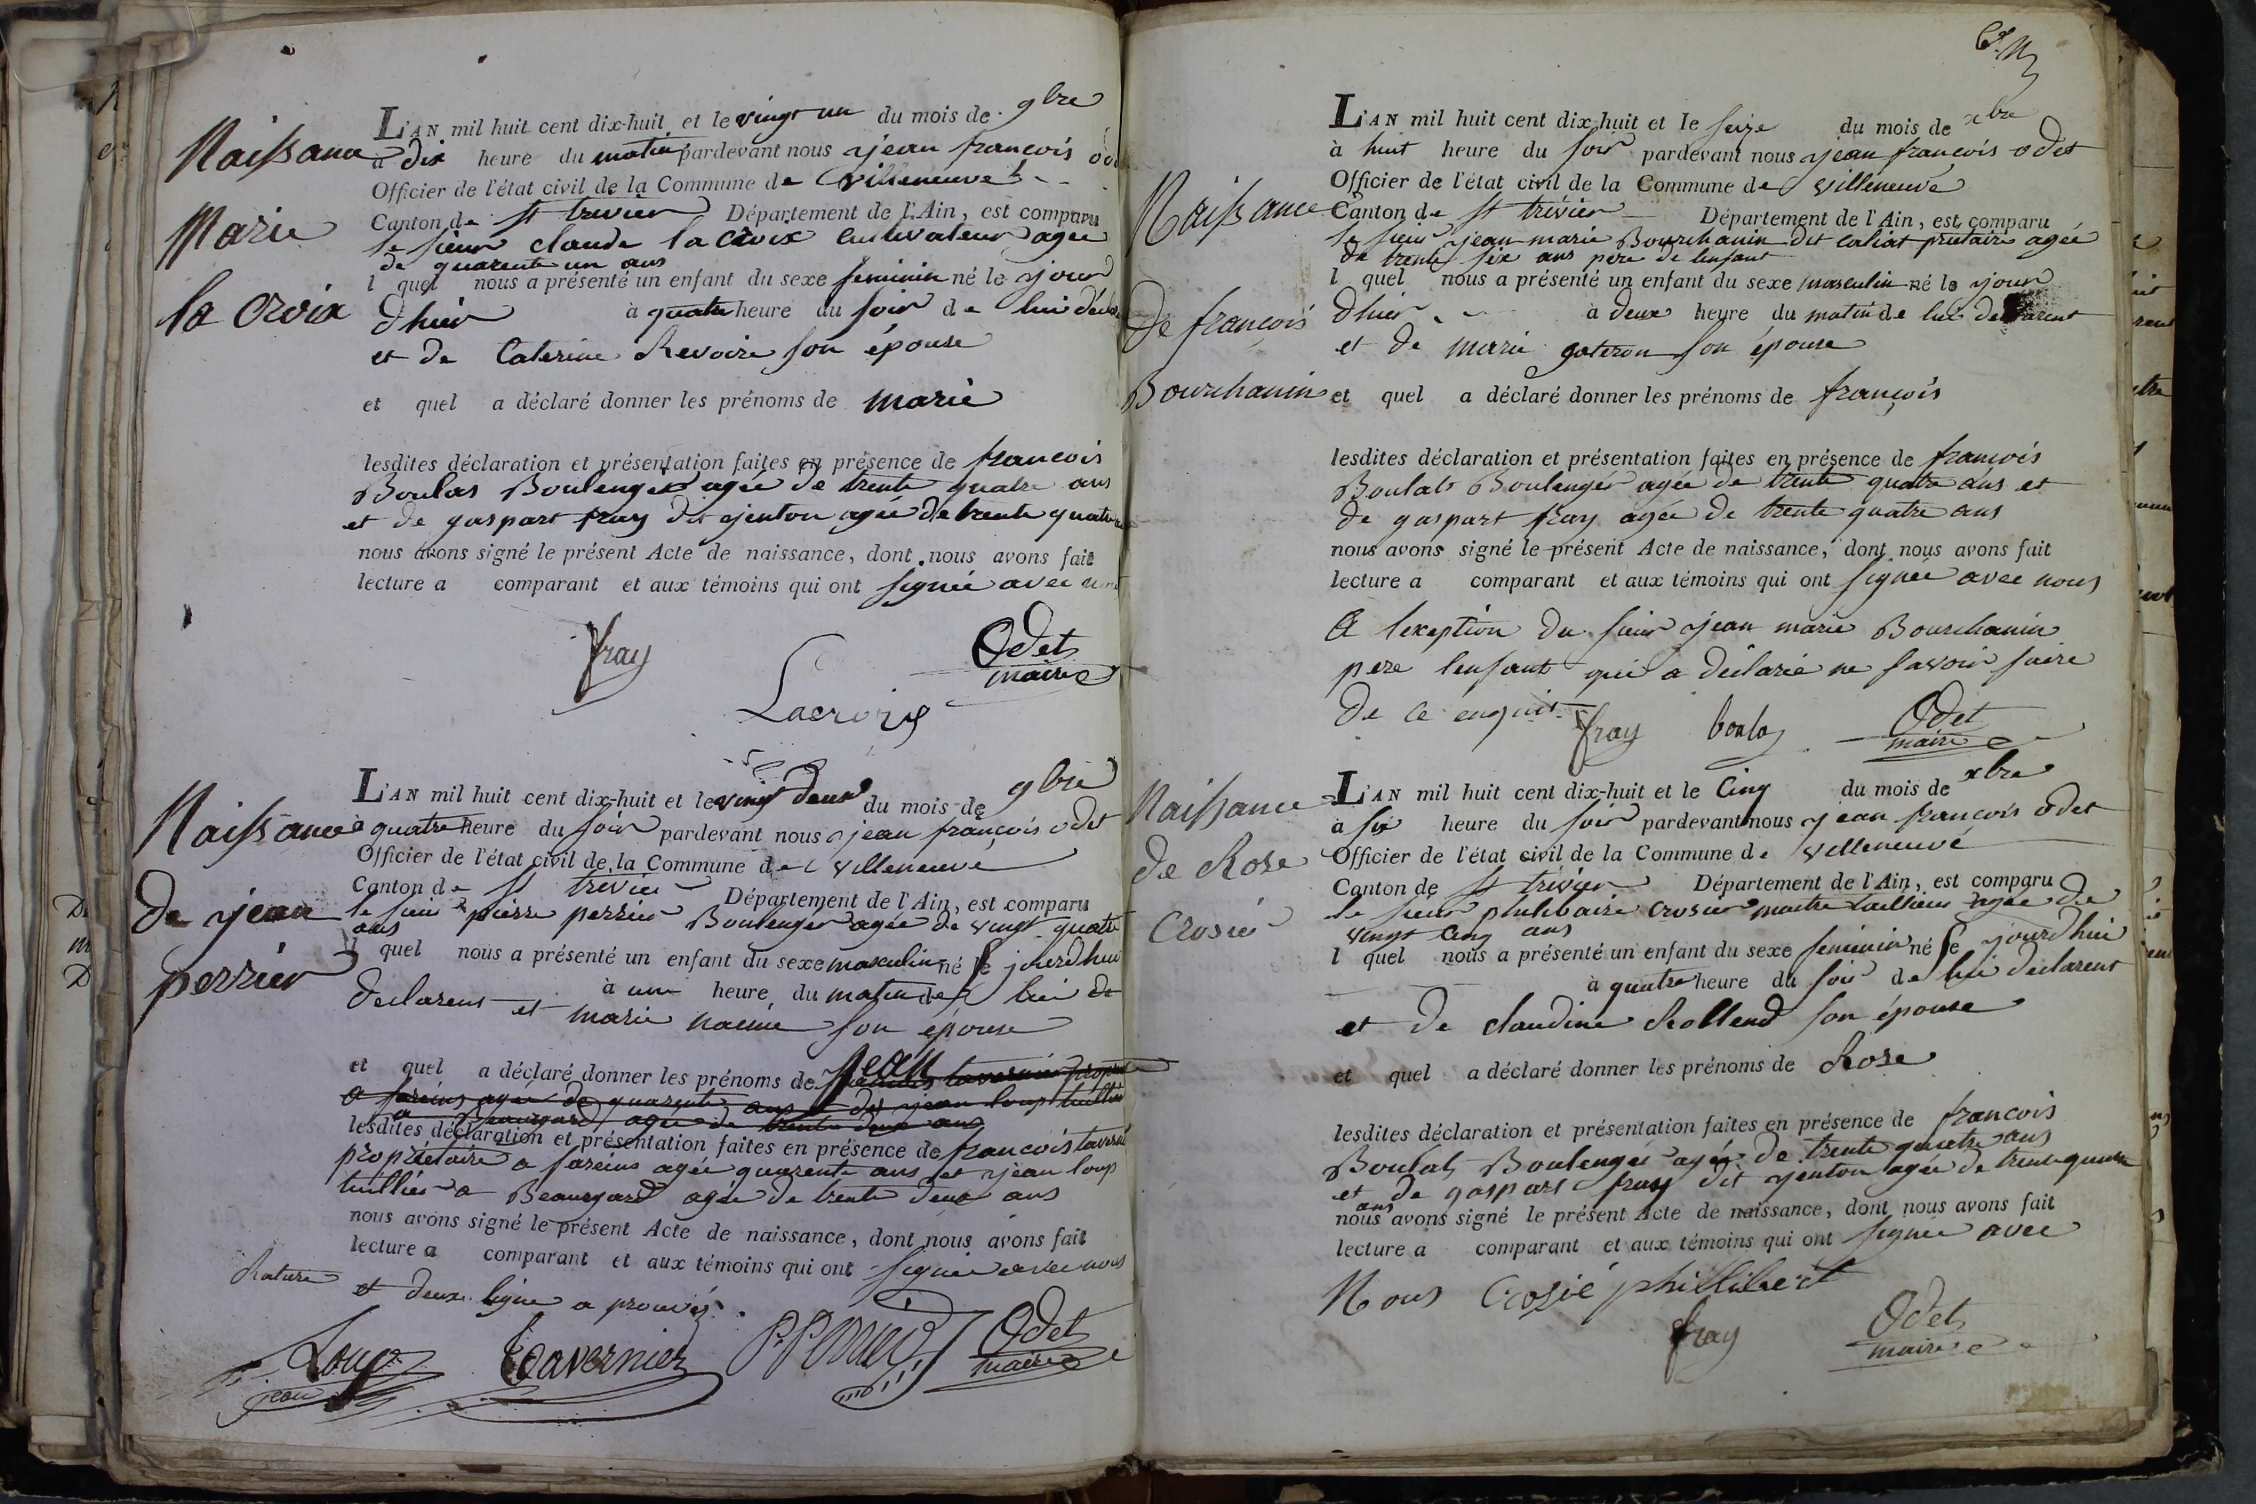 Naissance
Marie
la Croix
L'AN mil huit cent dix-huit et le vingt un du mois de 9bre
à dix heure du matin pardevant nous jean francois
Officier de l'état civil de la Commune de Villeneuve
Canton de St trevier Département de l'Ain, est comparu
le sieur claude la croix cultivateur agée
de quarente un ans
l quel nous a présenté un enfant du sexe feminin né le jour
dhier à quatre heure du soir de lui
et de Caterine Revoire son épouse
et quel a déclaré donner les prénoms de marie
lesdites déclaration et présentation faites en présence de francois
Boulas Boulenger agée de trente quatre ans
et de gaspart fray dit jenton agée de trente quatre
nous avons signé le présent Acte de naissance, dont nous avons fait
lecture a comparant et aux témoins qui ont signée avec
fray
Odet
maire
Lacroix
Naissance
de jean
perrier
L'AN mil huit cent dix-huit et le vingt deux du mois de 9bre
à quatre heure du soir pardevant nous jean françois odet
Officier de l'état civil de la Commune de villeneuve
Canton de St trevier Département de l'Ain, est comparu
le sieur pierre perrier Boulenger agée de vingt quatre
ans
l quel nous a présenté un enfant du sexe masculin né le jourdhui
à une heure du matin de lui de
declarent et marie son épouse
et quel a déclaré donner les prénoms de jean
a fareins agée de quarente ans et de jean loup tuillier
a Beauregard agée de trente deux ans
lesdites déclaration et présentation faites en présence de francois
propriétaire a fareins agée quarente ans et jean loup
tuillier a Beauregard agée de trente deux ans
nous avons signé le présent Acte de naissance, dont nous avons fait
lecture a comparant et aux témoins qui ont signée avec nous
Rature et deux ligne a prouvés
Loup
jean
Tavernier
P. Perrier
Odet
maire
Naissance
de françois
Bourchanin
L'AN mil huit cent dix-huit et le seize du mois de xbre
à huit heure du soir pardevant nous jean françois odet
Officier de l'état civil de la Commune de villeneuve
Canton de St trévier Département de l'Ain, est comparu
le sieur jean marie Bourchanin dit prietaire agée
de trente six ans pere de lenfant
l quel nous a présenté un enfant du sexe masculin né le jour
dhier à deux heure du matin de lui declarent
et de marie gateron son épouse
et quel a déclaré donner les prénoms de françois
lesdites déclaration et présentation faites en présence de francois
Boulat Boulenger agée de trente quatre ans et
de gaspart fray agée de trente quatre ans
nous avons signé le présent Acte de naissance, dont nous avons fait
lecture a comparant et aux témoins qui ont signée avec nous
A lexeption du sieur jean marie Bourchanin
pere lenfant qui a déclaré ne savoir faire
de ce enquit
fray
boulas
Odet
maire
Naissance
de Rose
Crosier
L'AN mil huit cent dix-huit et le Cinq du mois de xbre
à six heure du soir pardevant nous jean francois odet
Officier de l'état civil de la Commune de villeneuve
Canton de St trévier Département de l'Ain, est comparu
le sieur crosier maitre tailleur agée de
vingt Cinq ans
l quel nous a présenté un enfant du sexe feminin né le jourdhui
à quatre heure du soir de lui declarent
et de claudine Rollend son épouse
et quel a déclaré donner les prénoms de Rose
lesdites déclaration et présentation faites en présence de francois
Boulat Boulenger agée de trente quatre ans
et de gaspars fray dit jenton agée de trente quatre
ans
nous avons signé le présent Acte de naissance, dont nous avons fait
lecture a comparant et aux témoins qui ont signée avec
Nous Crosié phillibert
fray
Odet
maire